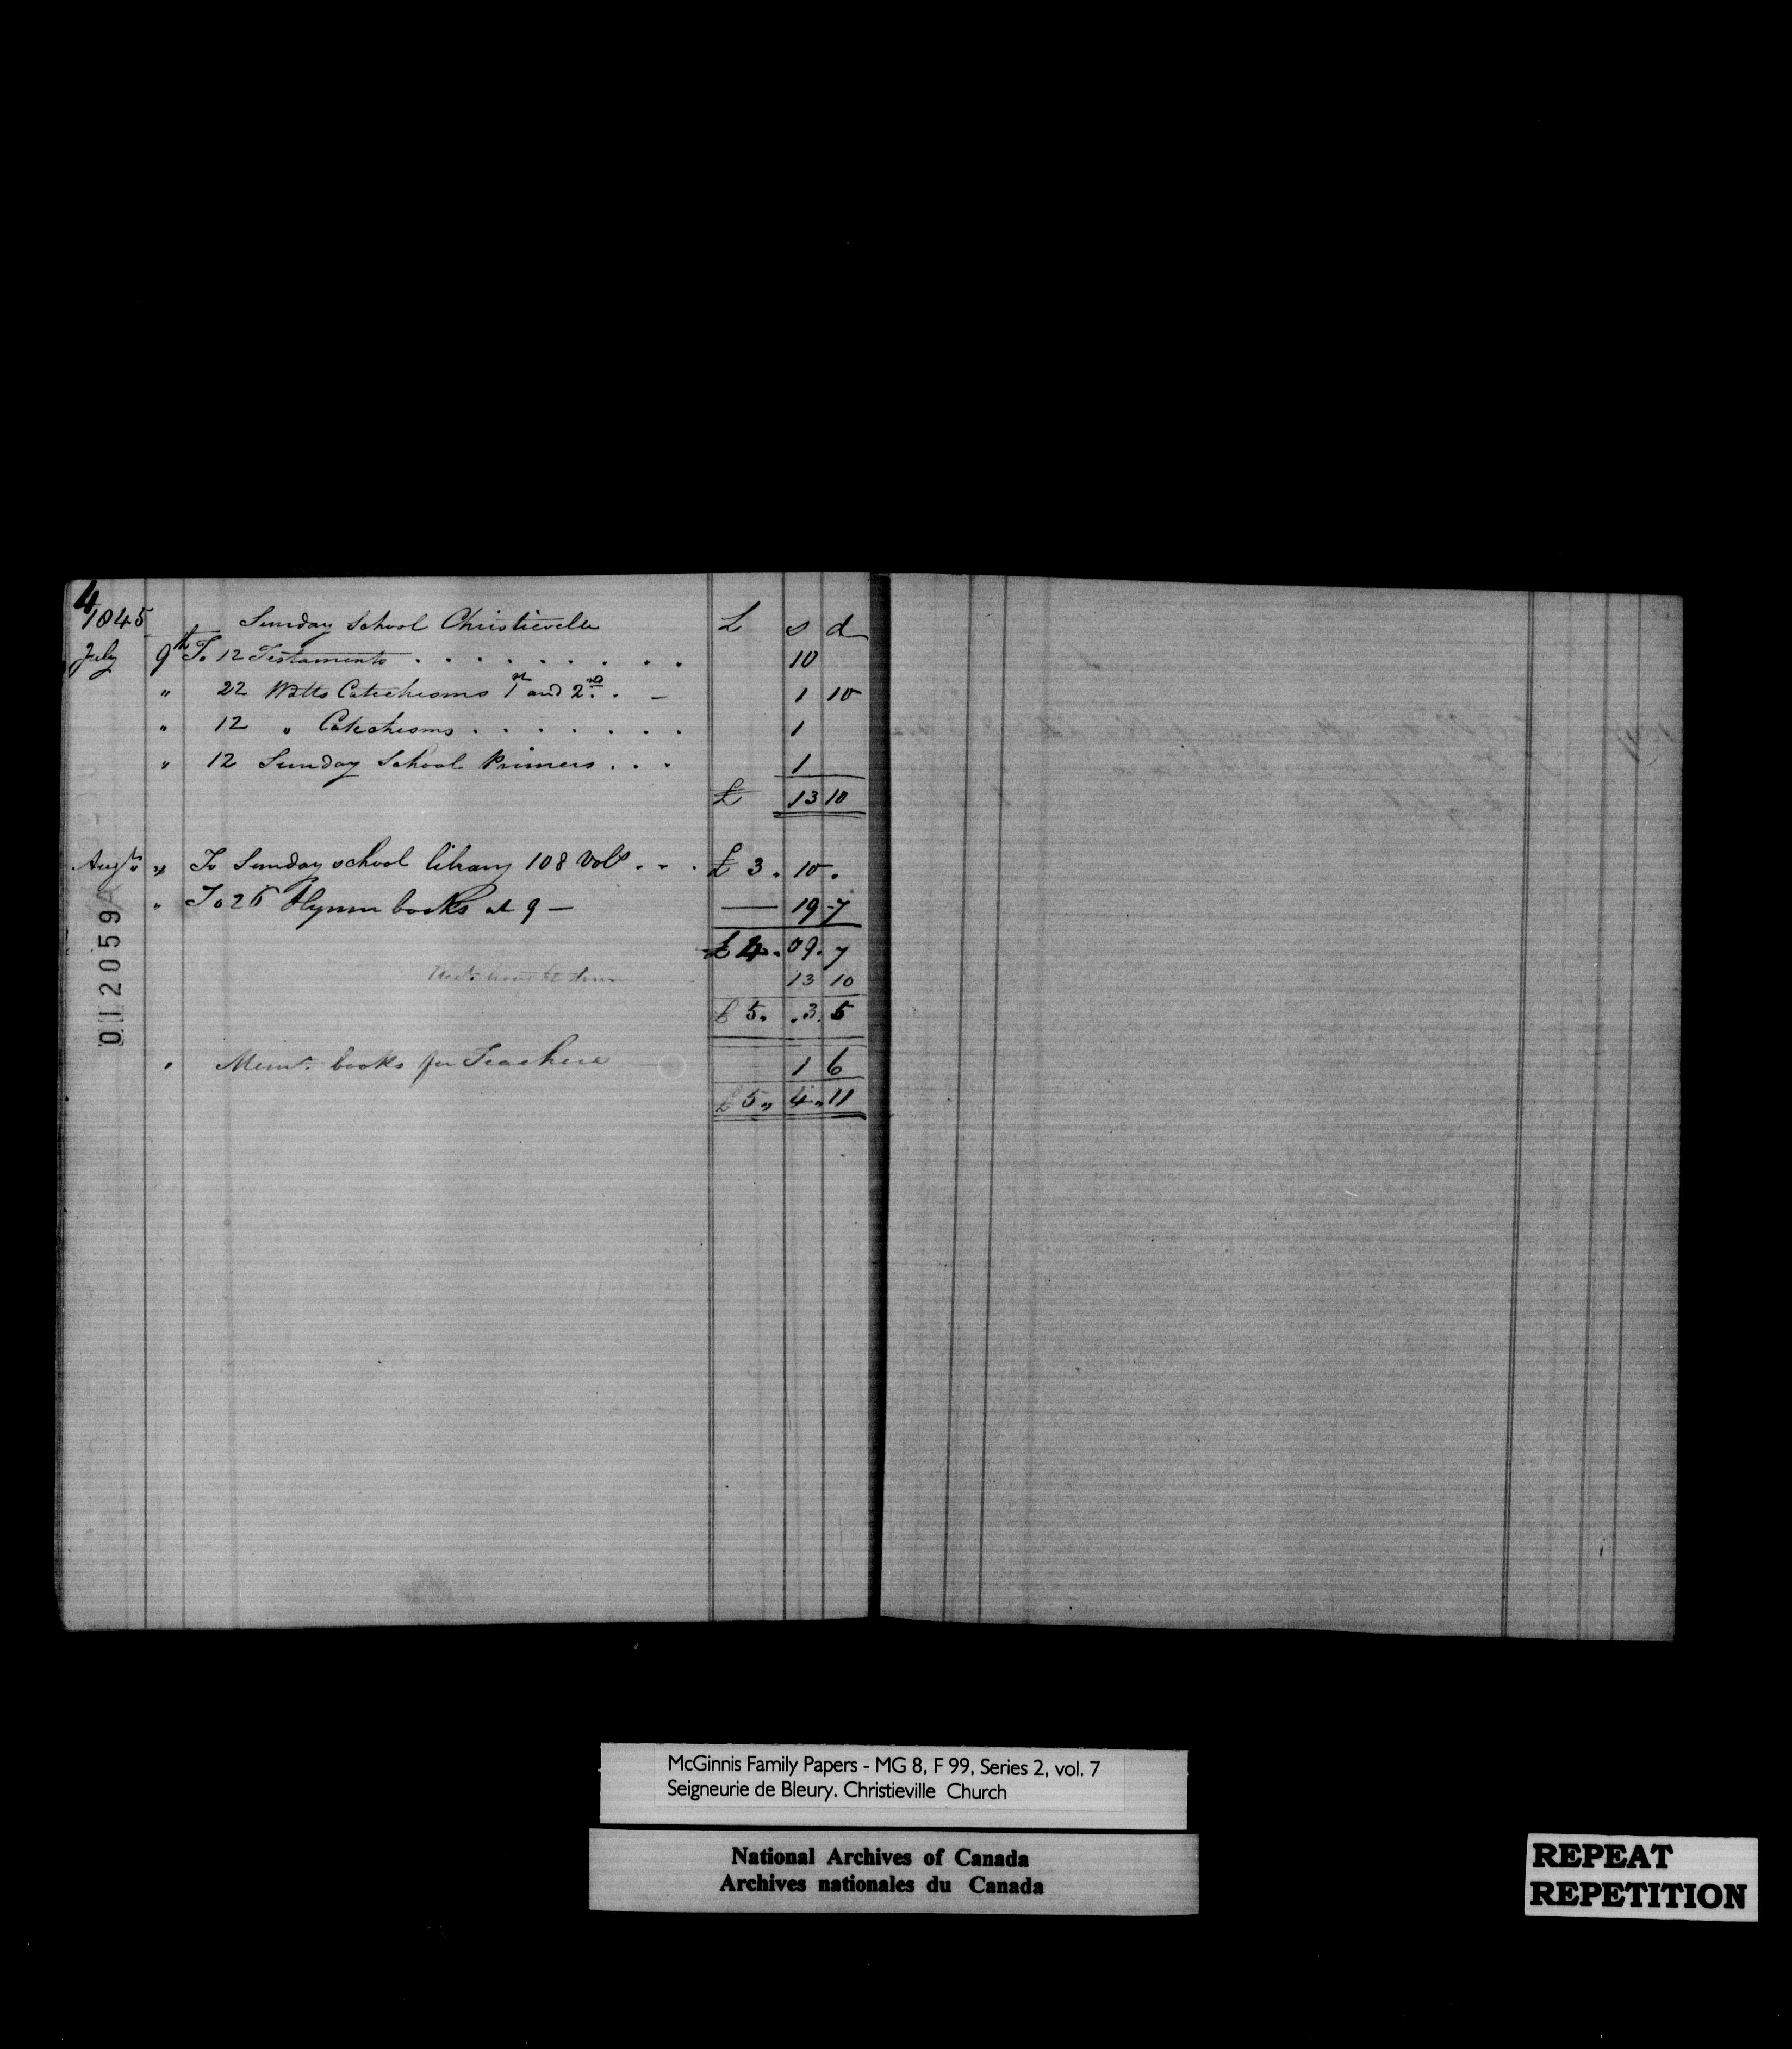 4
1845 Sunday School Christieville £ s d
July 9th To 12 Testaments . . . . . . . . . 10
" 22 Watts Catechisms 1st and 2nd . - 1 10
" 12 " Catechisms . . . . . . . 1
" 12 Sunday School Primers . . . 1
£ 13 10
Augt " To Sunday school library 108 Vols . . . £ 3 . 10 .
" To 26 Hymn books at 9 — — 19 - 7
£ 4 . 09 . 7
brought down 13 10
£ 5 . . 3 . 5
" Memm. books for Teachers 1 6
£ 5 " 4 " 11
012059
McGinnis Family Papers - MG 8, F 99, Series 2, vol. 7
Seigneurie de Bleury. Christieville Church
National Archives of Canada
Archives nationales du Canada
REPEAT
REPETITION